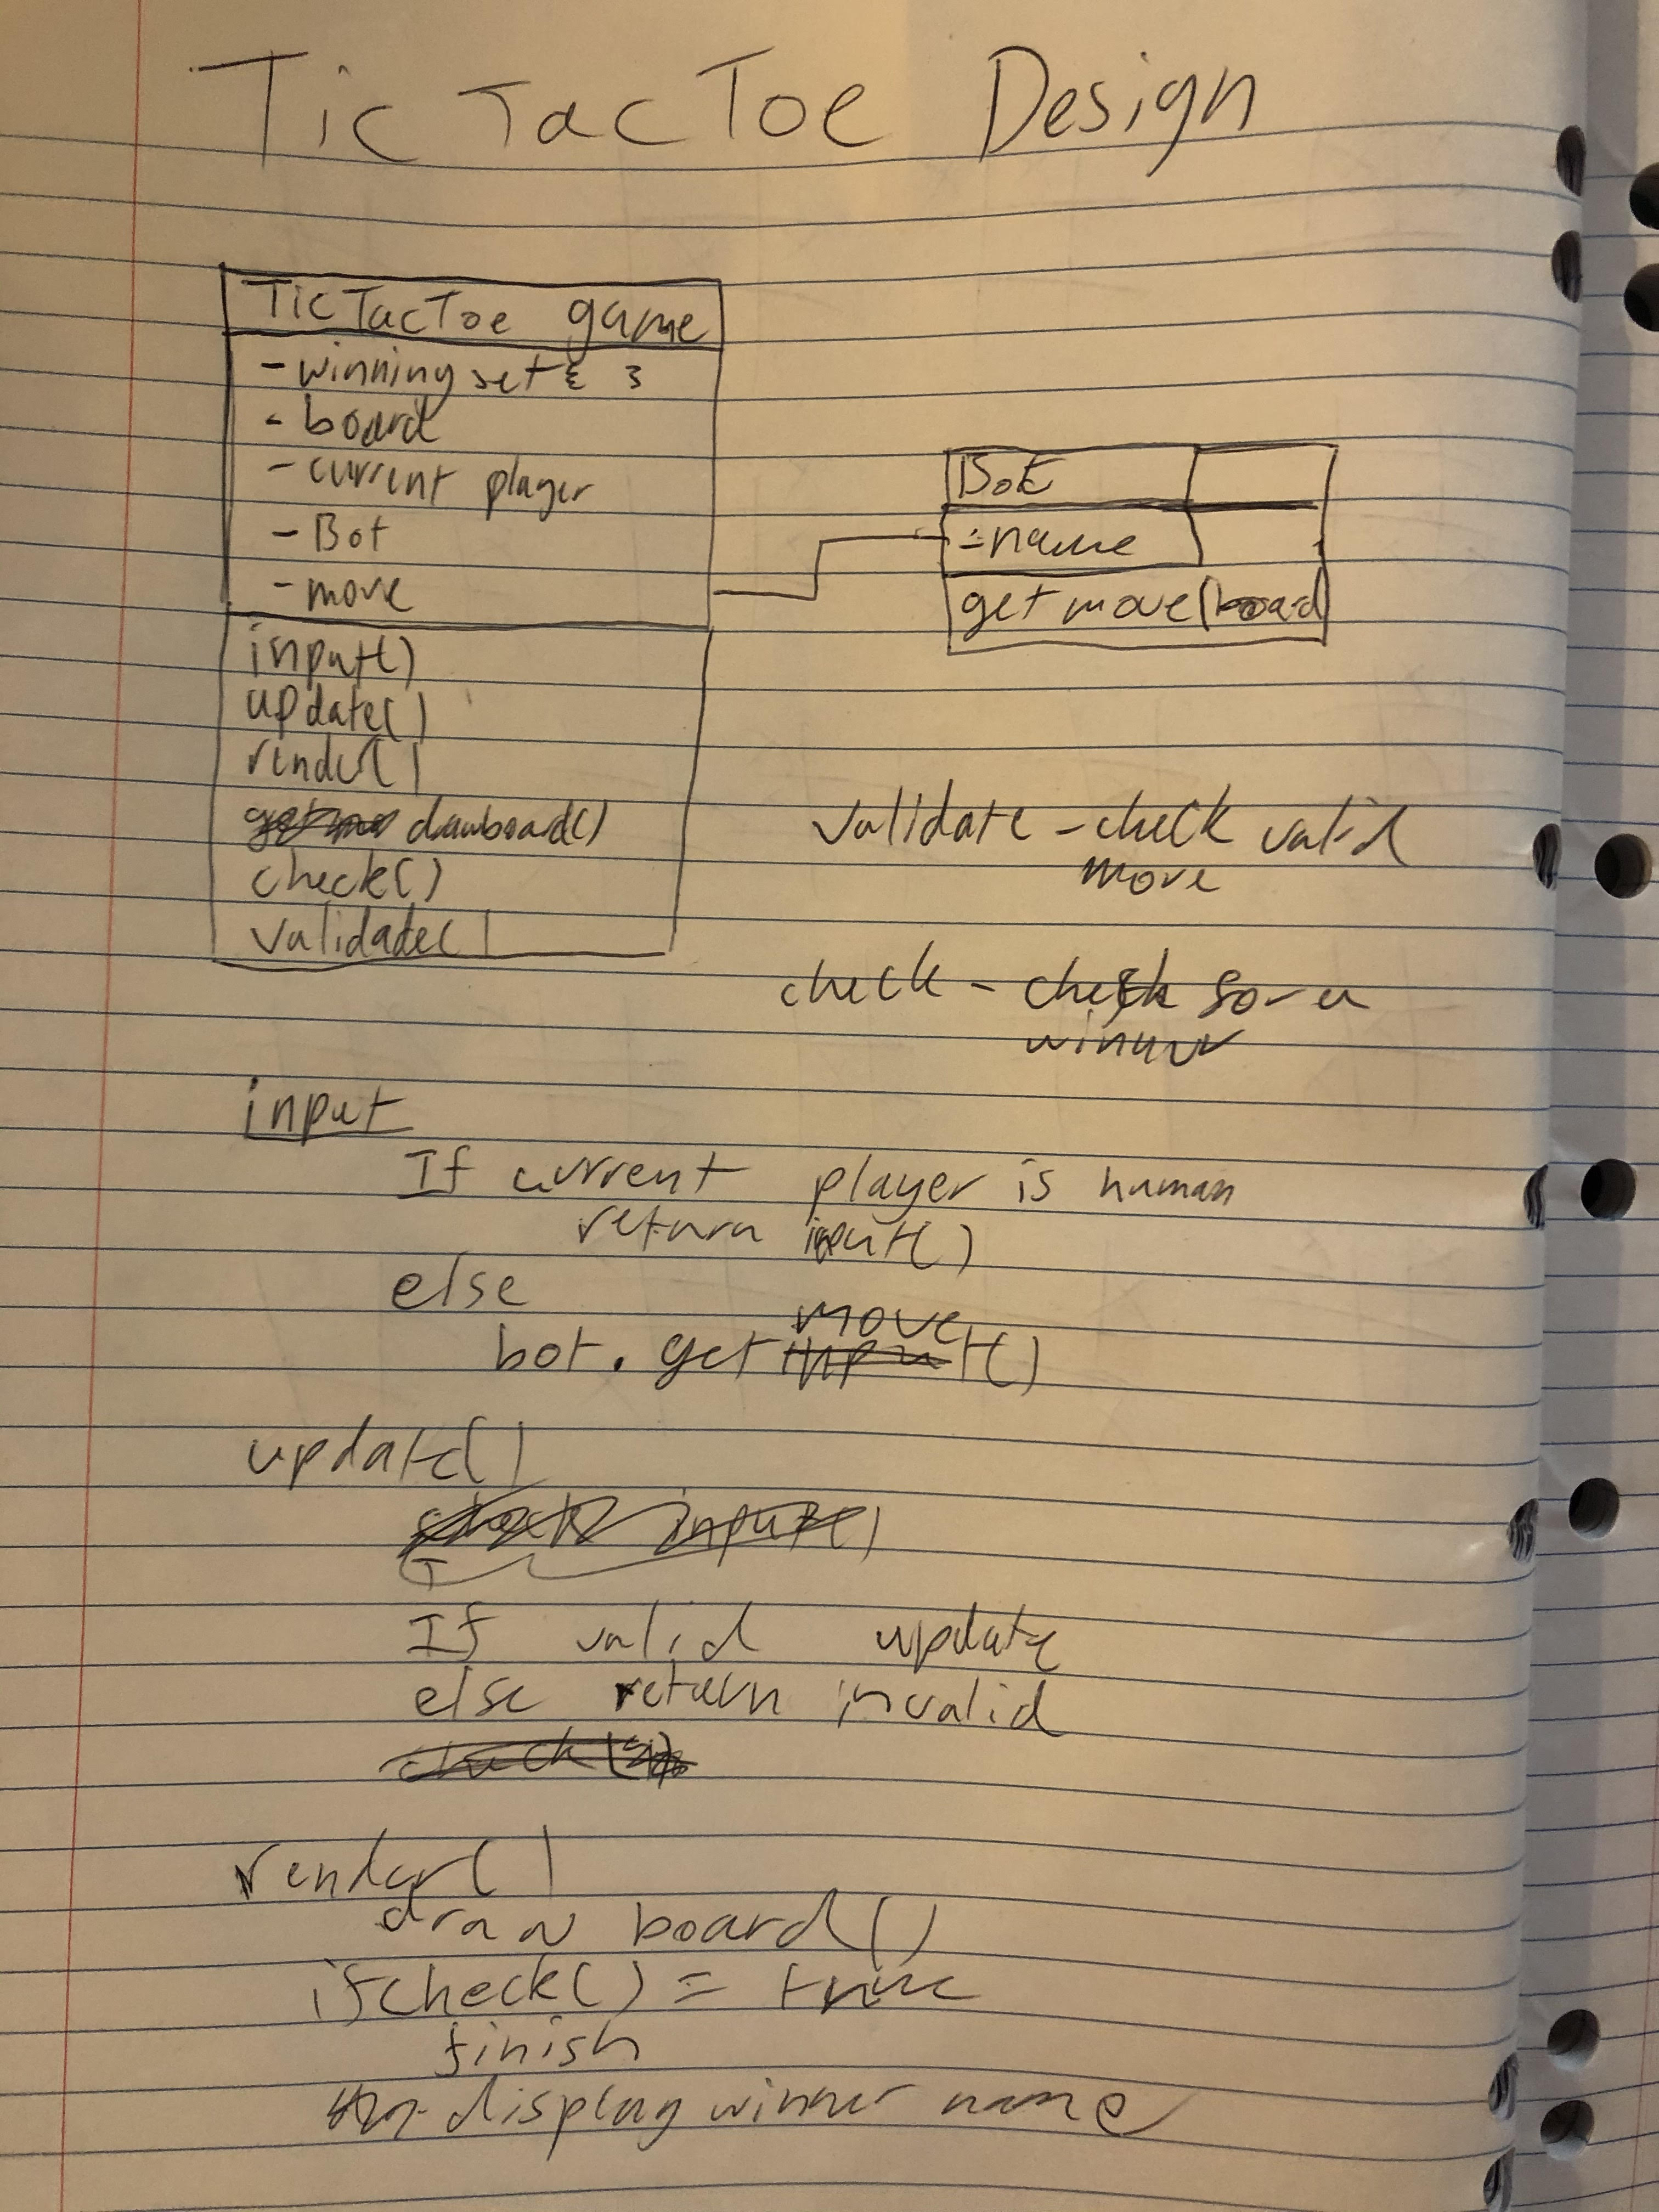 Tic Tac Toe Design
Tic Tac Toe game
- winning set { }
- board
- current player
- Bot
- move
input()
update()
render()
drawboard()
check()
validate()
Bot
- name
get move(board
validate - check valid
move
check - check for a
winner
input
If current player is human
return input()
else
move
bot. get input()
update()
check input()
If valid update
else return invalid
check()
render()
draw board()
if check() = true
finish
display winner name